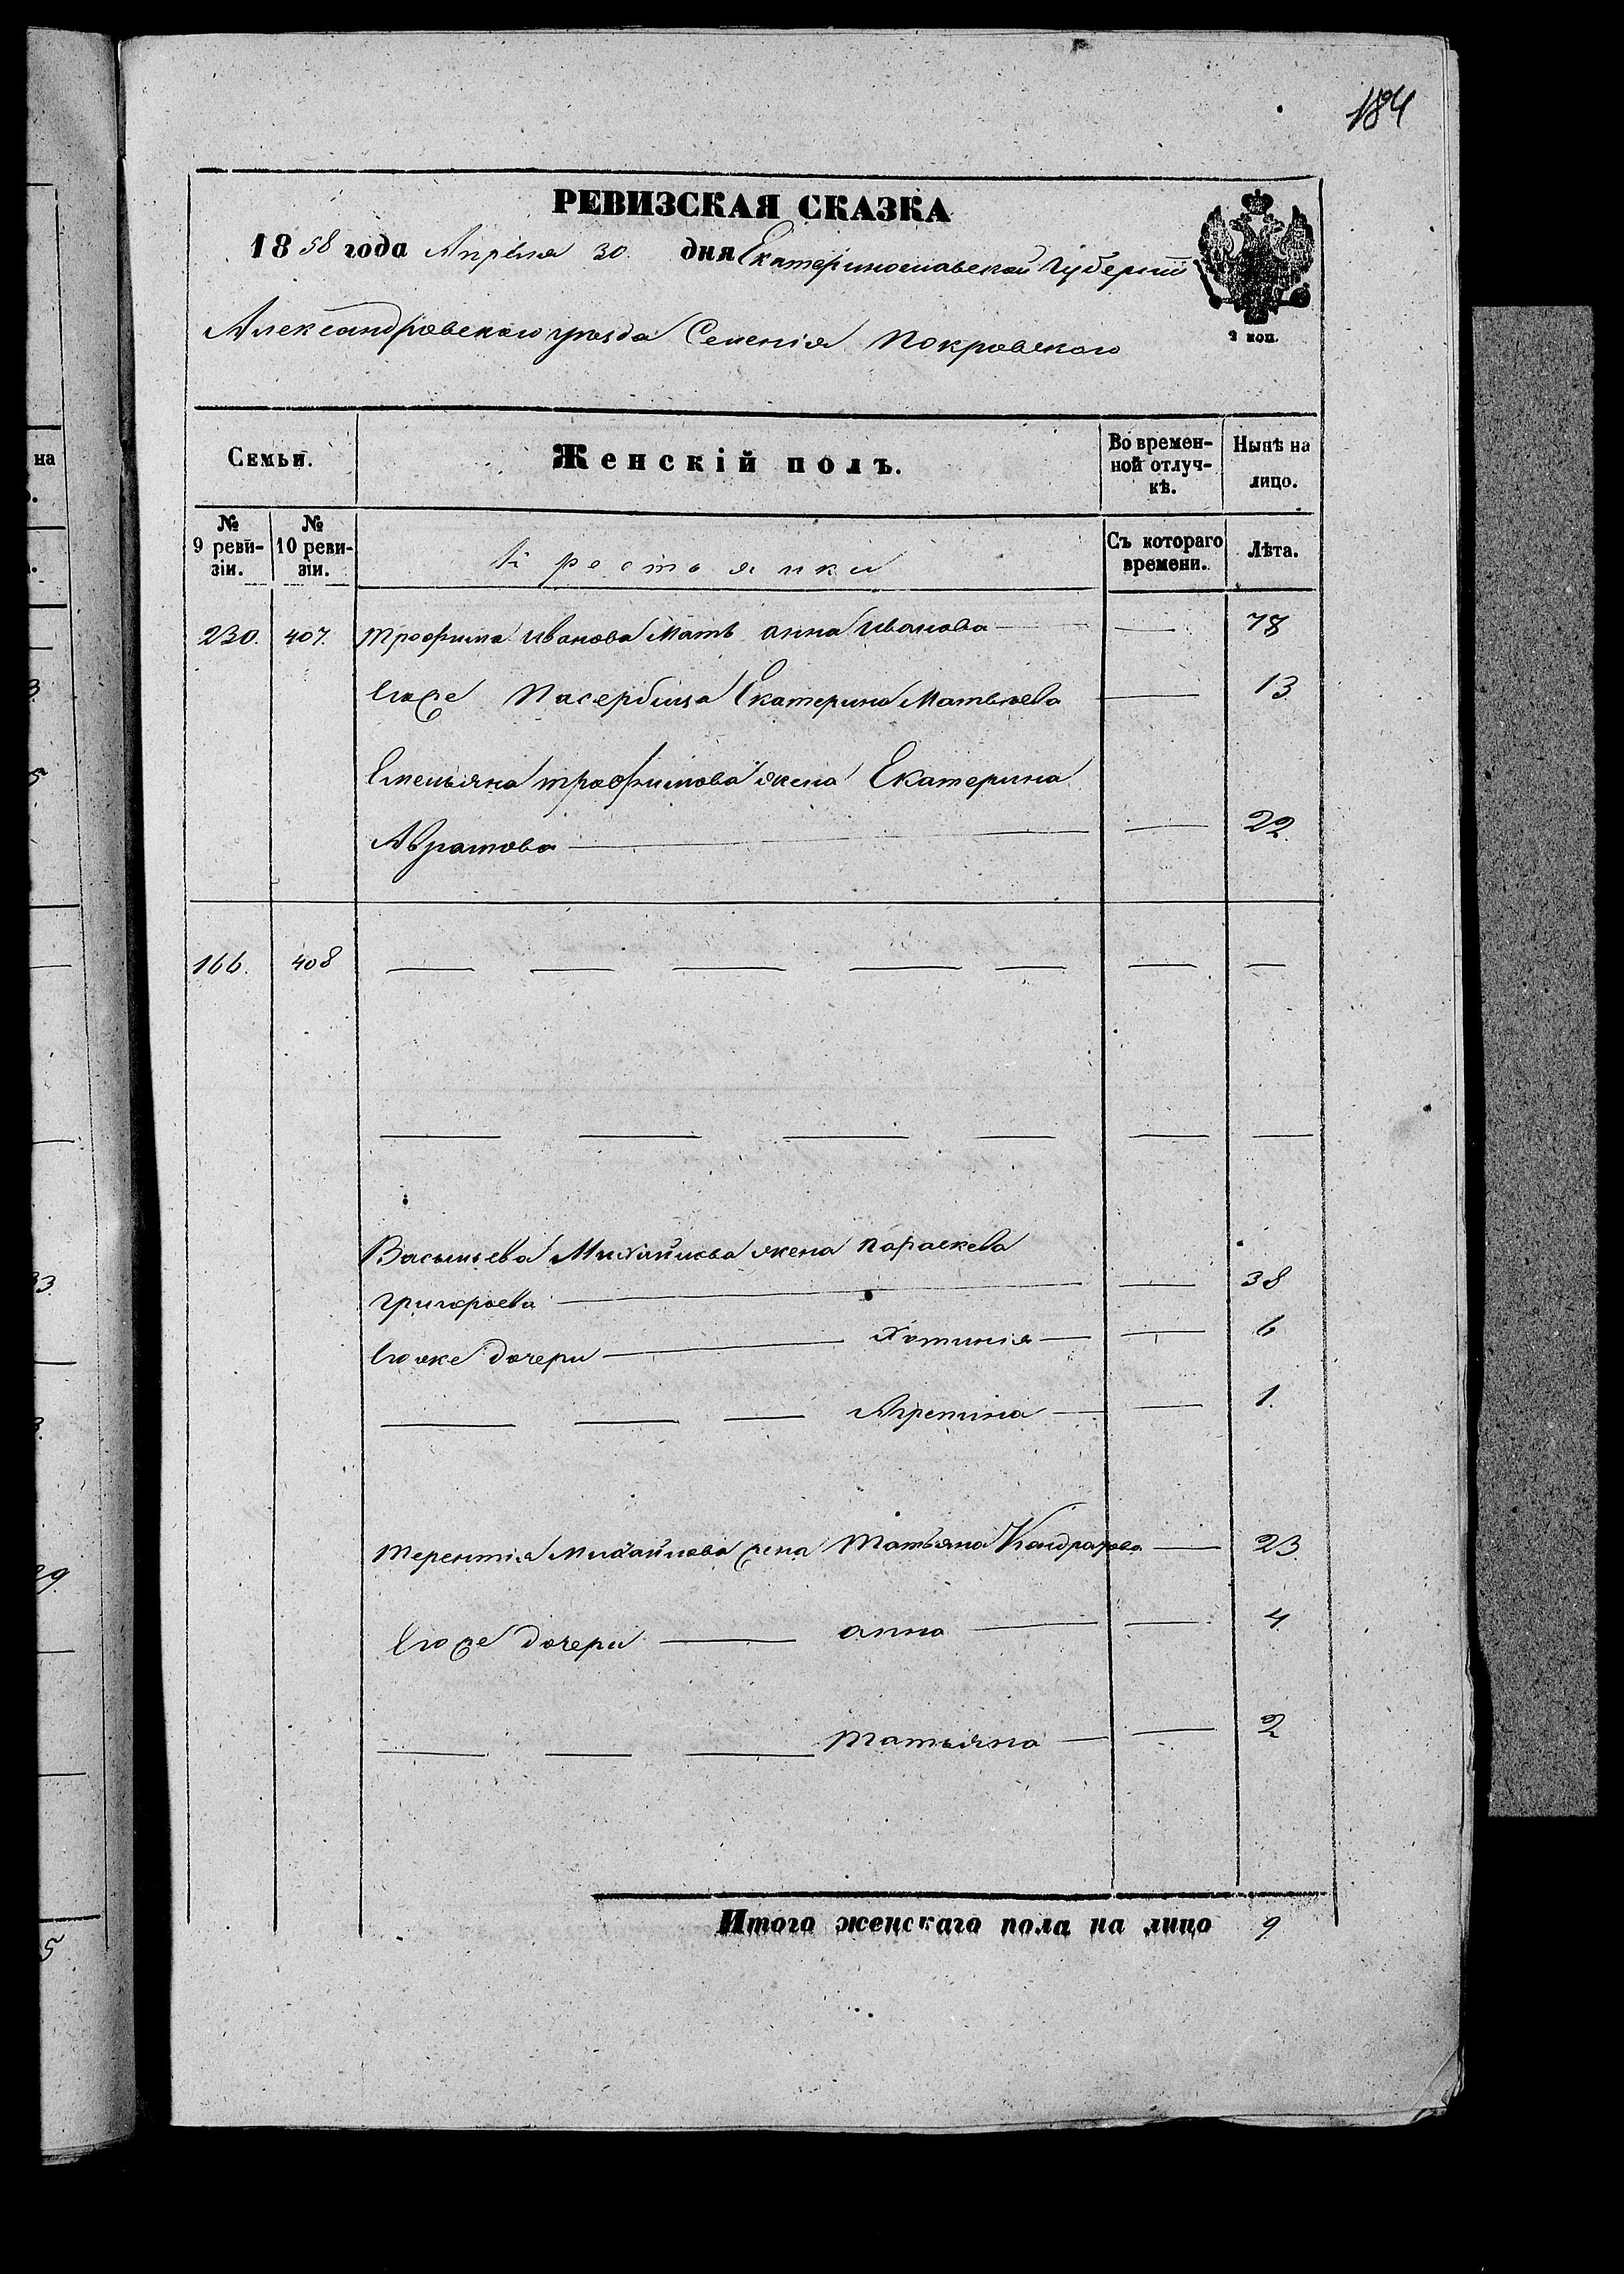 184
РЕВИЗСКАЯ СКАЗКА
1858 года Апреля 30 дня Екатеринославской Губернии
Александровского уезда Селенія Покровского
2 коп.
Семьи. Женскій полъ. Во времен-ной отлуч-кѣ. Нынѣ на лицо.
№ 9 реви-зіи. № 10 реви-зіи. Крестьянки Съ котораго времени. Лѣта.
230. 407. Трофима Иванова Мать Анна Иванова — — 78
Егоже Пасербица Екатерина Матвѣева — 13
Емельяна Трофимова жена Екатерина
Абрамова — — 22
166. 408 — — — — — — —
— — — — — —
Васильева Михайлова жена Параскева
Григорьева — — 38
Егоже дочери — Хотинія — — 6
— — — Агрепина — — 1.
Терентія Михайлова жена Татьяна Кондратова — 23.
Егоже дочери — Анна — — 4
— — — Татьяна — — 2
Итого женскаго пола на лицо 9
на
3
5
33.
3.
29.
5